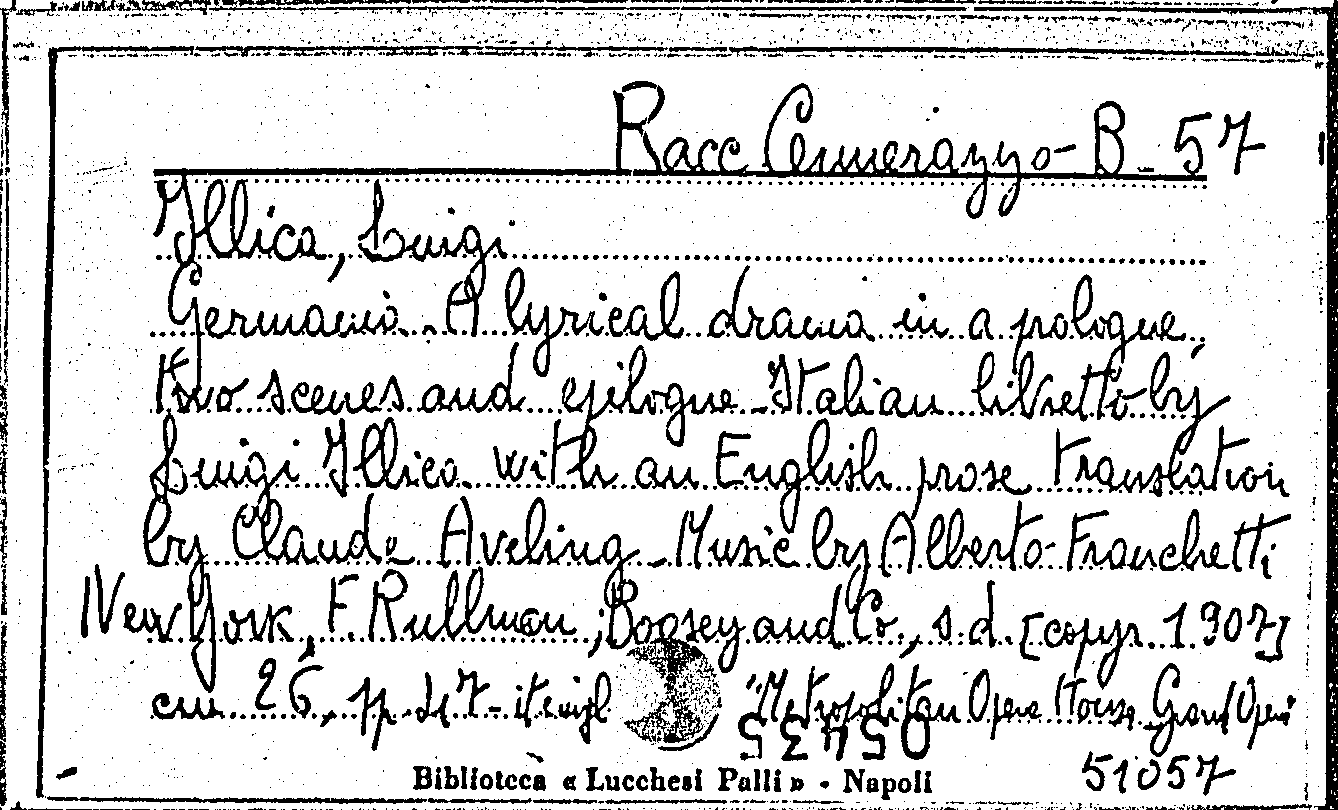 Racc Cemmerazzo - B - 57
Illica, Luigi
Germania. A lyrical drama in a prologue,
two scenes and epilogue - Italian libretto by
Luigi Illica with an English prose translation
by Claude Aveling - Music by Alberto Franchetti
New York, F. Rullman; Boosey and Co., s.d. [copyr. 1907]
cm 26, pp. "Metropolitan Opera House Grand Opera
05435
51057
Biblioteca « Lucchesi Palli » - Napoli